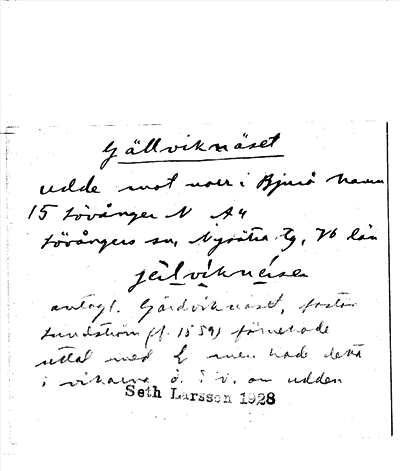 Gällviknäset
udde mot norr i Bjurö hamn
15 Lövånger N A4
Lövångers sn, Nysätra tg, Vb län
jälvikneisen
antagl. Gärdviknäset,
Lundström (f. 1859) förnekade
uttal med men hade detta
i vikarna o. i v. om udden
Seth Larsson 1928